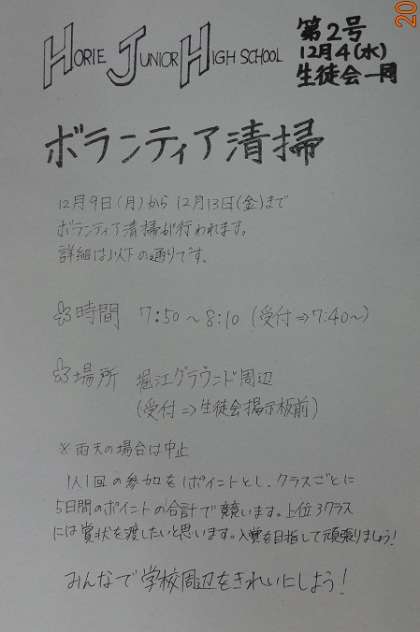 HORIE JUNIOR HIGH SCHOOL
第2号
12月4(水)
生徒会一同
20
ボランティア清掃
12月9日(月)から12月13日(金)まで
ボランティア清掃が行われます。
詳細は以下の通りです。
時間 7:50～8:10 (受付⇒7:40～)
場所 堀江グラウンド周辺
(受付⇒生徒会掲示板前)
※雨天の場合は中止
1人1回の参加を1ポイントとし、クラスごとに
5日間のポイントの合計で競います。上位3クラス
には賞状を渡したいと思います。入賞を目指して頑張りましょう!
みんなで学校周辺をきれいにしよう!